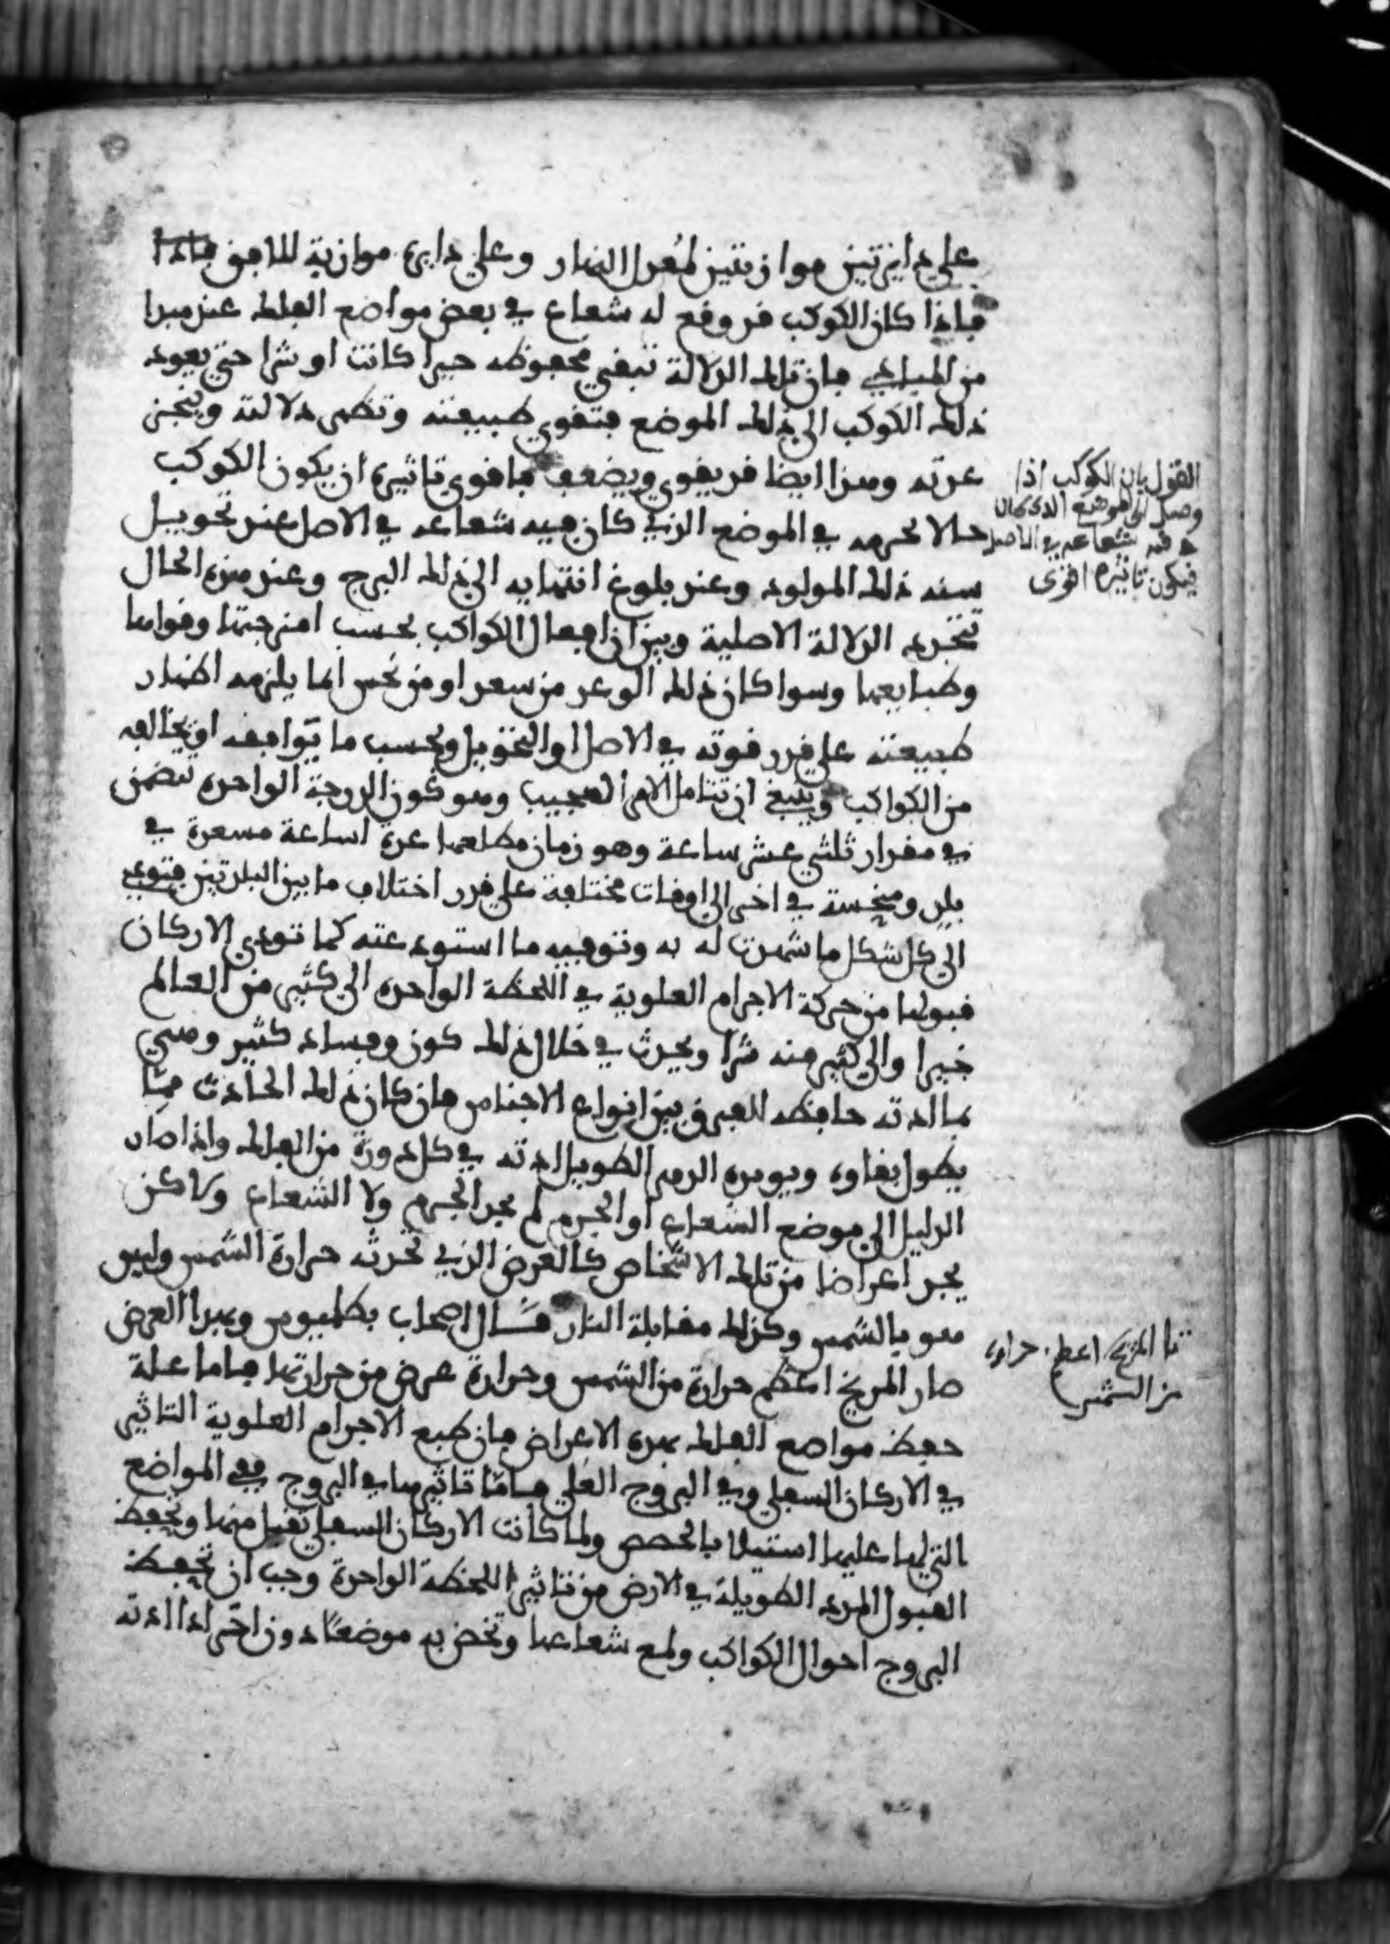 على دايرتين موازيتين لمعدل النهار وعلى دايرة موازية للافق فاذا
فاذا كان الكوكب قد وقع له شعاع في بعض مواضع الفلك عند مبدا
من المبادي فان تلك الدلالة تبقى محفوظه خيرا كانت او شرا حتى يعود
ذلك الكوكب الى ذلك الموضع فتقوى طبيعته وتظهر دلالته وينجز
عدته وهذا ايضا قد يقوى ويضعف فاقوى تاثيره ان يكون الكوكب
حالا بجرمه في الموضع الذي كان فيه شعاعه في الاصل عند تحويل
سنه ذلك المولود وعند بلوغ انتهايه الى ذلك البرج وعند هذه الحال
تتجرد الدلالة الاصلية وبين ان افعال الكواكب بحسب امزجتها وقواها
وطبايعها وسوا كان ذلك الوعد من سعد او من نحس انما يلزمه اظهار
طبيعته على قدر قوته في الاصل او التحويل وبحسب ما يوافقه او يخالفه
من الكواكب وينبغي ان تتامل الامر العجيب وهو كون الدرجة الواحدة تتضمن
في مقدار ثلثي عشر ساعة وهو زمان مطلعها عدة اساعة مسعدة في
بلد ومنحسة في اخرى الى اوقات مختلفة على قدر اختلاف ما بين البلدتين فتودي
الى كل شكل ما شهدت له به وتوفيه ما استودعته كما تودي الاركان
قبولها من حركة الاجرام العلوية في اللحظة الواحدة الى كثير من العالم
خيرا والى كثير منه شرا ويحدث في خلال ذلك كون وفساد كثير وهي
بما ادته حافظه للفرق بين انواع الاجناس فان كان ذلك الحادث مما
يطول بقاوه ويوبده الدهر الطويل ادته في كل دورة من الفلك واذا صار
الدليل الى موضع الشعاع او الجرم لم يجد الجرم ولا الشعاع ولاكن
يجد اعراضا من تلك الاشخاص كالعرض الذي تحدثه حرارة الشمس وليس
هو بالشمس وكذلك مقابلة النار قال اصحاب بطلميوس وبهذا العرض
صار المريخ اعظم حرارة من الشمس وحرارة عرض من حرارتها فاما علة
حفظ مواضع الفلك بهذه الاعراض فان طبع الاجرام العلوية التاثير
في الاركان السفلى وفي البروج العلى فاما تاثيرها في البروج ففي المواضع
التي لها عليها استيلا بالحصص ولما كانت الاركان السفلى تقبل منها وتحفظ
القبول المدد الطويلة في الارض من تاثير اللحظة الواحدة وجب ان تحفظ
البروج احوال الكواكب ولمع شعاعها وتخص به موضعا دون اخر اذا ادته
القول بان الكوكب اذا
وصل الى الموضع الذي كان
وقع شعاعه في الاصل
فيكون تاثيره اقوى
المريخ اعظم حرارة
من الشمس